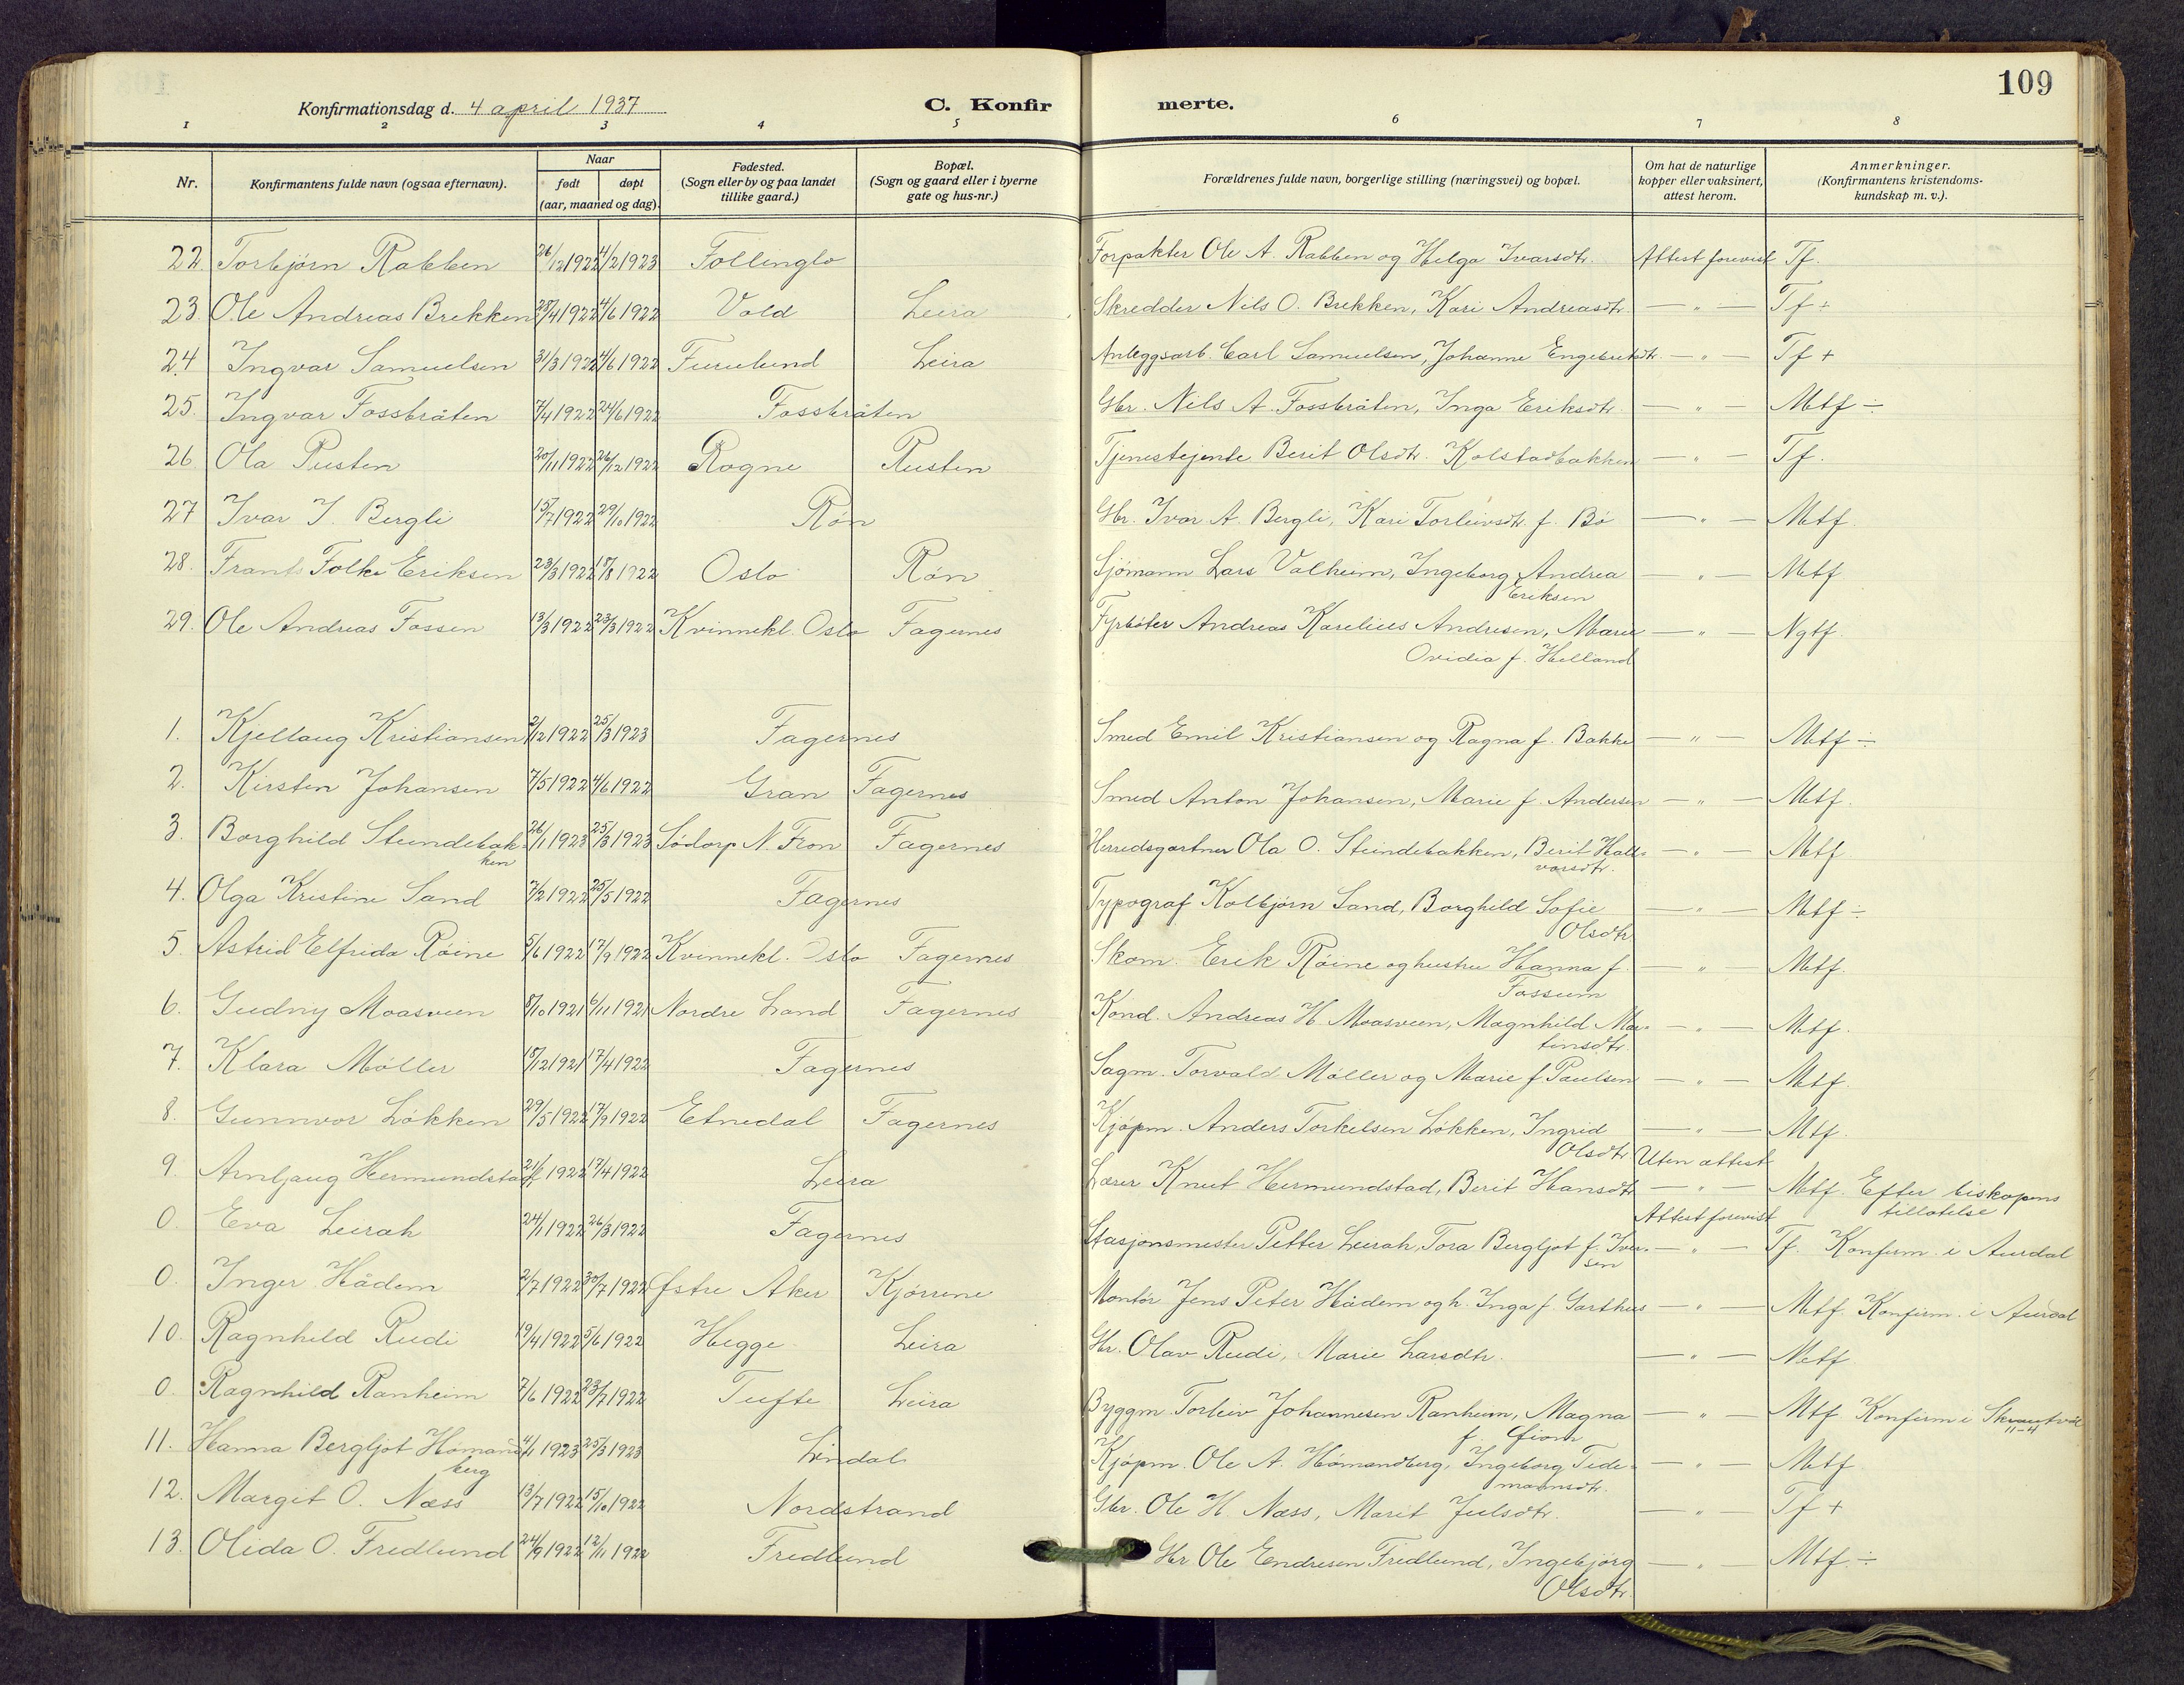 109
Konfirmationsdag d. 4 april 1937
C. Konfir merte.
1 2 3 4 5 6 7 8
Nr.
Konfirmantens fulde navn (ogsaa efternavn).
Naar
født døpt
(aar, maaned og dag).
Fødested.
(Sogn eller by og paa landet
tillike gaard.)
Bopæl.
(Sogn og gaard eller i byerne
gate og hus-nr.)
Forældrenes fulde navn, borgerlige stilling (næringsvei) og bopæl.
Om hat de naturlige
kopper eller vaksinert,
attest herom.
Anmerkninger.
(Konfirmantens kristendoms-
kundskap m. v.).
22. Torbjörn Rabben 26/12 1922 4/2 1923 Follinglo Forpakter Ole A. Rabben og Helga Ivarsdtr. Attest forevist Tf.
23. Ole Andreas Brekken 28/4 1922 4/6 1922 Vold Leira Skredder Nils O. Brekken, Kari Andreasdtr. — " — Tf +
24 Ingvar Samuelsen 31/3 1922 4/6 1922 Furulund Leira Anleggsarb. Carl Samuelsen, Johanne Engebretsdtr. — " — Tf +
25. Ingvar Fossbråten 7/4 1922 24/6 1922 Fossbråten Gbr. Nils A. Fossbråten, Inga Eriksdtr. — " — Mtf ÷
26. Ola Rusten 20/11 1922 26/12 1922 Rogne Rusten Tjenestejente Berit Olsdtr. Kolstadbakken — " — Tf.
27 Ivar I. Bergli 15/7 1922 29/10 1922 Røn Gbr. Ivar A. Bergli, Kari Torleivsdtr. f. Bø — " — Mtf.
28. Frants Folke Eriksen 23/3 1922 15/8 1922 Oslo Røn Sjömann Lars Valheim, Ingeborg Andrea — " — Mtf
Eriksen
29. Ole Andreas Fossen 13/3 1922 23/3 1922 Kvinnekl. Oslo Fagernes Fyrböter Andreas Karelius Andresen, Marie — " — Ngtf.
Ovidia f. Helland
1. Kjellaug Kristiansen 2/12 1922 25/3 1923 Fagernes Smed Emil Kristiansen og Ragna f. Bakke — " — Mtf ÷
2. Kirsten Johansen 7/5 1922 4/6 1922 Gran Fagernes Smed Anton Johansen, Marie f. Andersen — " — Mtf.
3. Borghild Steindebak- 26/1 1923 25/3 1923 Södorp N. Fron Fagernes Herredsgartner Ola O. Steindebakken, Berit Hall- — " — Mtf
ken varsdtr.
4. Olga Kristine Sand 7/2 1922 25/5 1922 Fagernes Typograf Kolbjörn Sand, Borghild Sofie — " — Mtf ÷
Olsdtr
5. Astrid Elfrida Röine 5/6 1922 17/9 1922 Kvinnekl. Oslo Fagernes Skom. Erik Röine og hustru Hanna f. — " — Mtf.
Fossum
6. Gudny Moasveen 8/10 1921 6/11 1921 Nordre Land Fagernes Kond. Andreas H. Moasveen, Magnhild Mar- — " — Mtf.
tinsdtr.
7. Klara Möller 18/12 1921 17/4 1922 Fagernes Sagm. Torvald Möller og Marie f. Paulsen — " — Mtf.
8. Gunnvor Lökken 29/5 1922 17/9 1922 Etnedal Fagernes Kjöpm. Anders Torkelsen Lökken, Ingrid — " — Mtf.
Olsdtr Uten attest
9. Arnljaug Hermundstad 1922 17/4 1922 Leira Lærer Knut Hermundstad, Berit Hansdtr — " — Mtf. Efter biskopens
tillatelse
Attest forevist
0. Eva Leirah 24/1 1922 26/3 1922 Fagernes Stasjonsmester Petter Leirah, Tora Bergljot f. Iver- — " — Tf. Konfirm. i Aurdal
sen
0. Inger Hådem 2/7 1922 30/7 1922 Østre Aker Kjörrene Montör Jens Peter Hådem og h. Inga f. Garthus — " — Mtf. Konfirm. i Aurdal
10. Ragnhild Rudi 19/4 1922 5/6 1922 Hegge Leira Gbr. Olav Rudi, Marie Larsdtr. — " — Mtf
0. Ragnhild Ranheim 7/6 1922 23/7 1922 Tufte Leira Byggm. Torleiv Johannesen Ranheim, Magna — " — Mtf Konfirm i Skrautvål
f. 11-4
11. Hanna Bergljot Hömand- 4/1 1923 25/3 1923 Lindal Kjöpm. Ole A. Hömandberg, Ingeborg Tide- — " — Mtf
berg mannsdtr.
12. Margit O. Næss 13/7 1922 15/10 1922 Nordstrand Gbr. Ole H. Næss, Marit Julsdtr. — " — Tf +
13. Olida O. Fredlund 24/9 1922 12/11 1922 Fredlund Gbr Ole Endresen Fredlund, Ingebjørg — " — Mtf. ÷
Olsdtr.